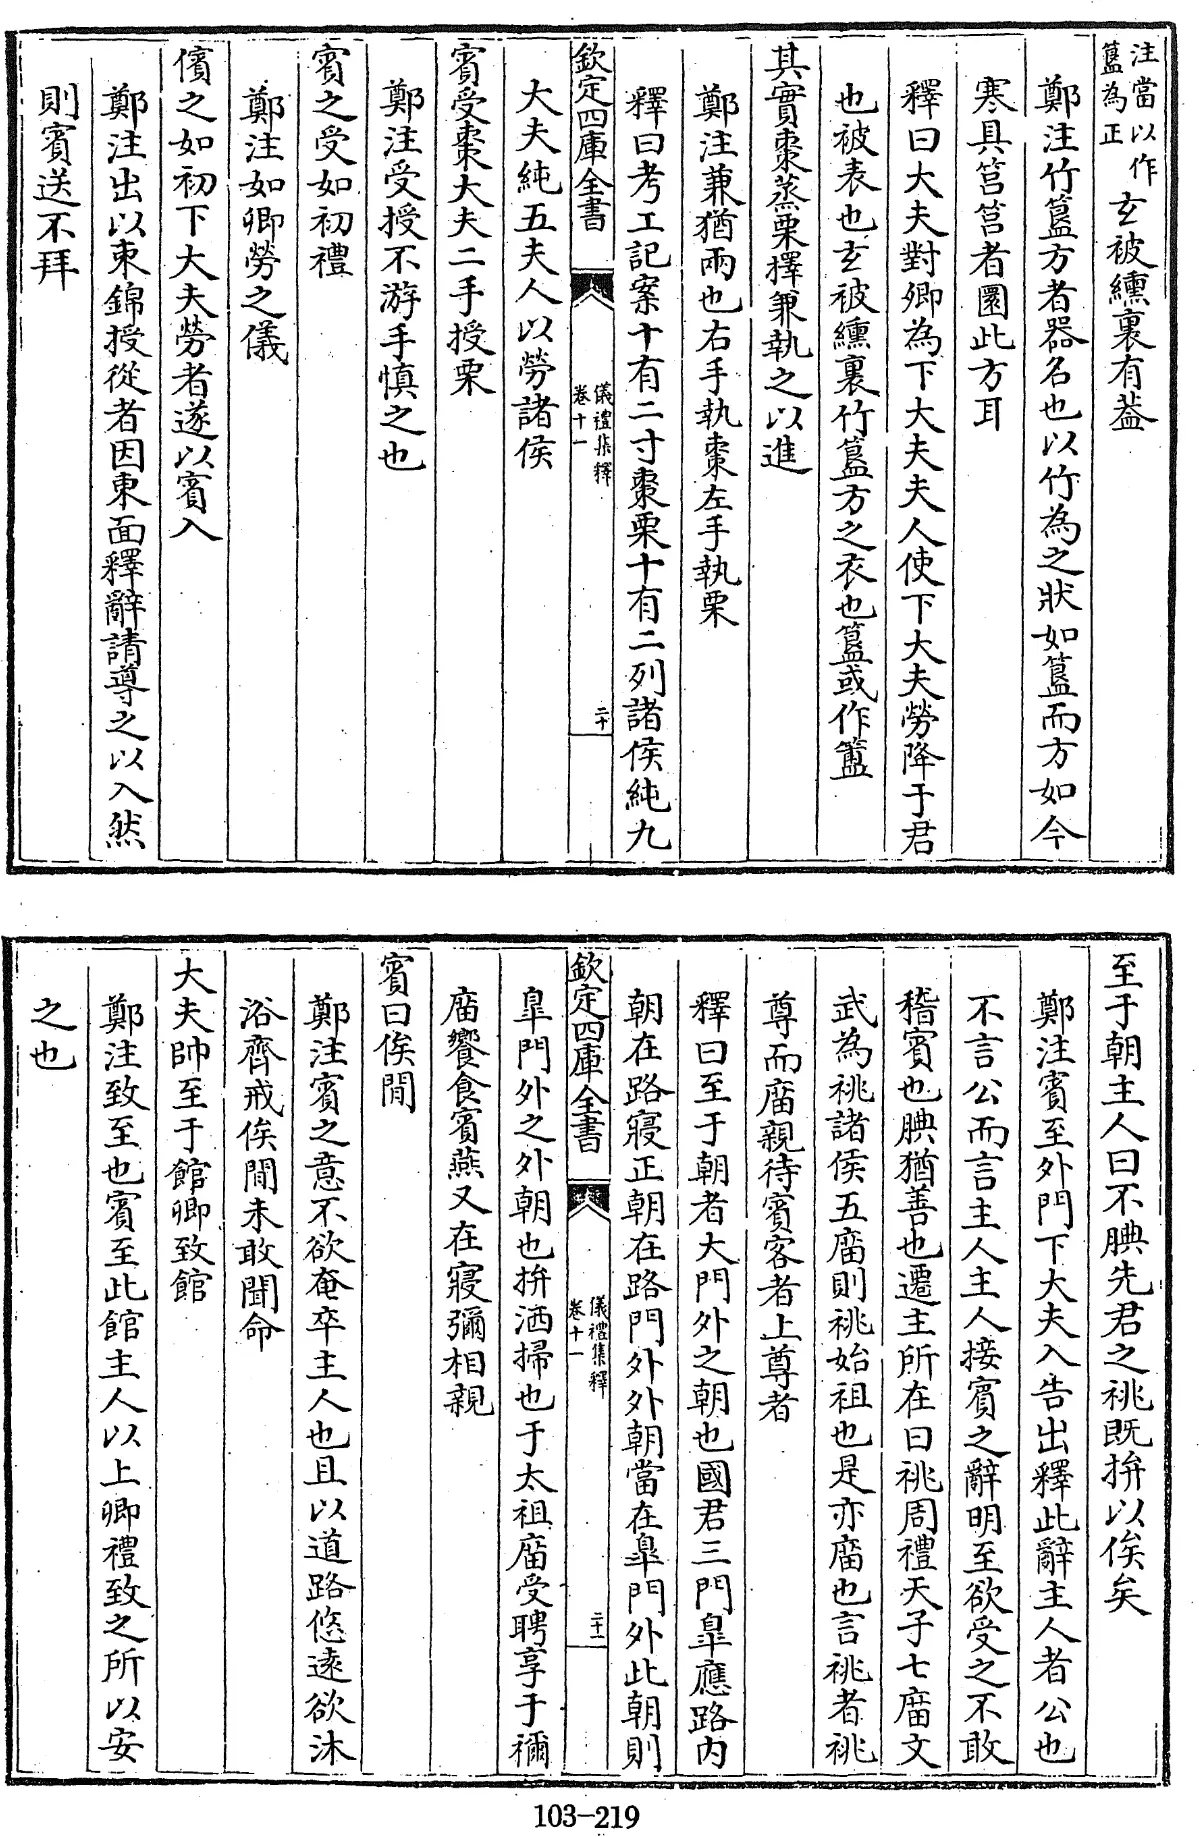 注當以作
簋為正
玄被纁裏有葢
鄭注竹簋方者器名也以竹為之狀如簋而方如今
寒具筥筥者圜此方耳
釋曰大夫對卿為下大夫夫人使下大夫勞降于君
也被表也玄被纁裏竹簋方之衣也簋或作簠
其實棗蒸栗擇兼執之以進
鄭注兼猶兩也右手執棗左手執栗
釋曰考工記案十有二寸棗栗十有二列諸侯純九
欽定四庫全書
儀禮集釋
卷十一
二十
大夫純五夫人以勞諸侯
賓受棗大夫二手授栗
鄭注受授不游手慎之也
賓之受如初禮
鄭注如卿勞之儀
儐之如初下大夫勞者遂以賓入
鄭注出以束錦授從者因東面釋辭請導之以入然
則賓送不拜
至于朝主人曰不腆先君之祧既拚以俟矣
鄭注賓至外門下大夫入告出釋此辭主人者公也
不言公而言主人主人接賓之辭明至欲受之不敢
稽賓也腆猶善也遷主所在曰祧周禮天子七廟文
武為祧諸侯五廟則祧始祖也是亦廟也言祧者祧
尊而廟親待賓客者上尊者
釋曰至于朝者大門外之朝也國君三門臯應路内
朝在路寢正朝在路門外外朝當在臯門外此朝則
欽定四庫全書
儀禮集釋
卷十一
二十一
臯門外之外朝也拚洒掃也于太祖廟受聘享于禰
廟饗食賓燕又在寢彌相親
賓曰俟閒
鄭注賓之意不欲奄卒主人也且以道路悠遠欲沐
浴齊戒俟閒未敢聞命
大夫帥至于館卿致館
鄭注致至也賓至此館主人以上卿禮致之所以安
之也
103-219